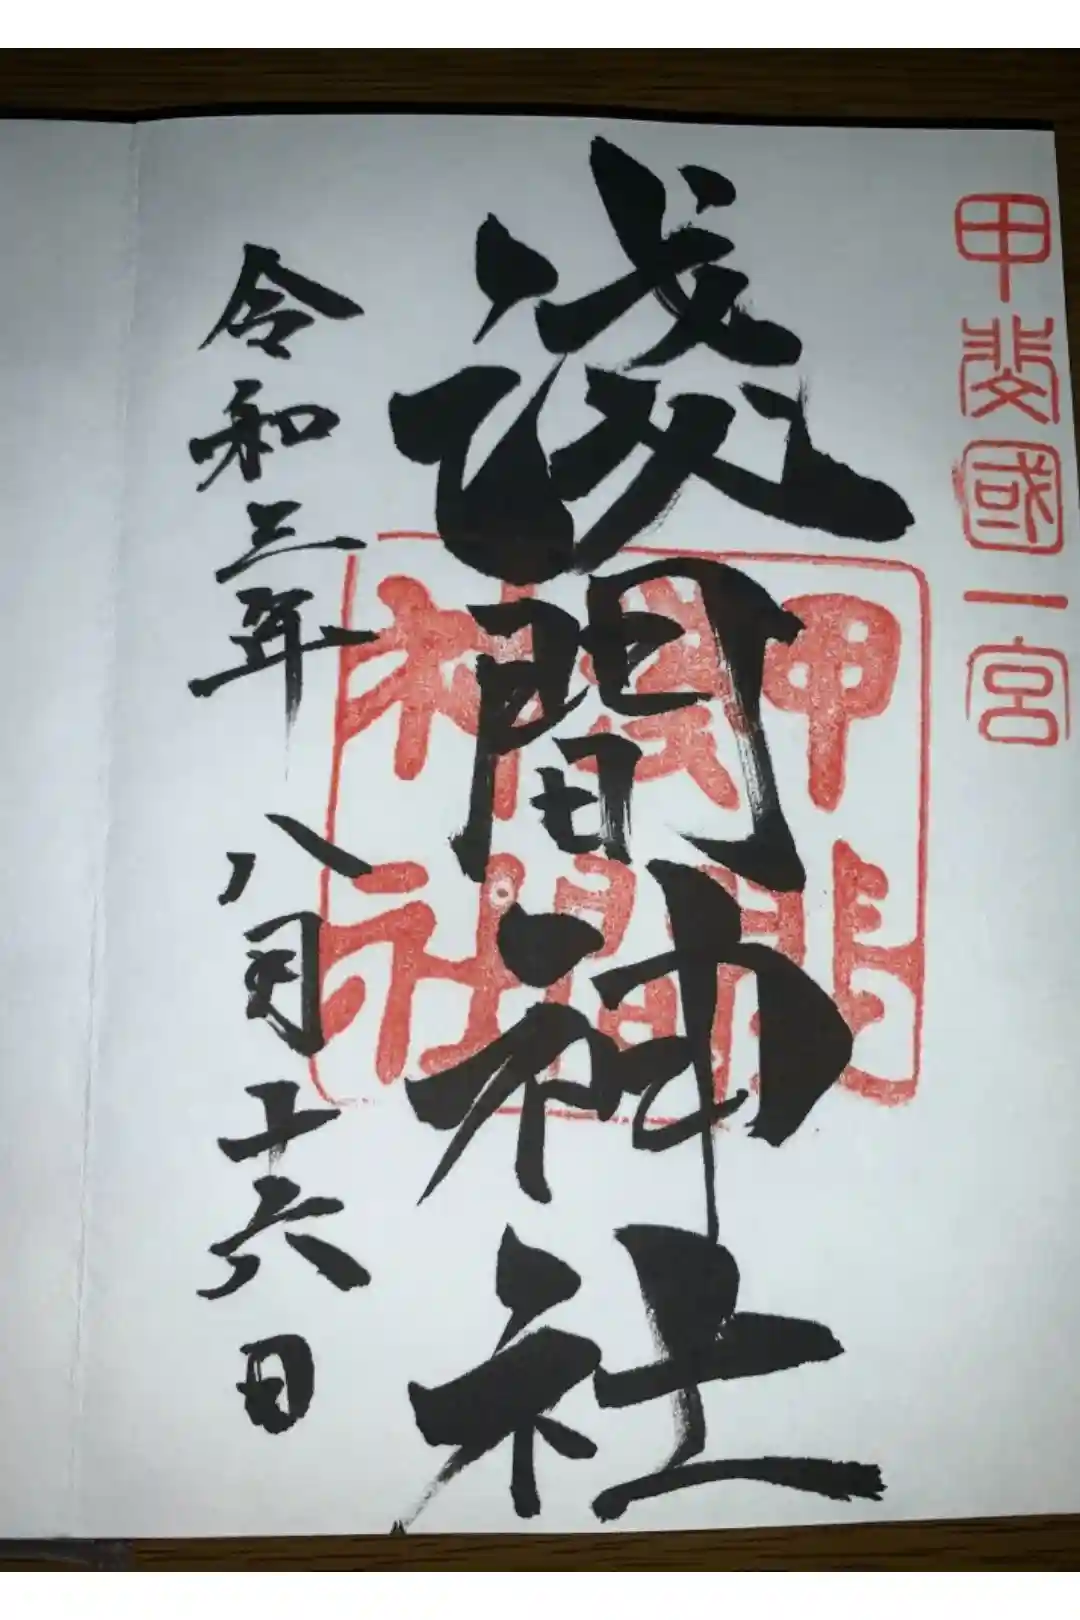 甲斐國一宮
淺間神社
甲斐
淺間
神社
令和三年 八月十六日